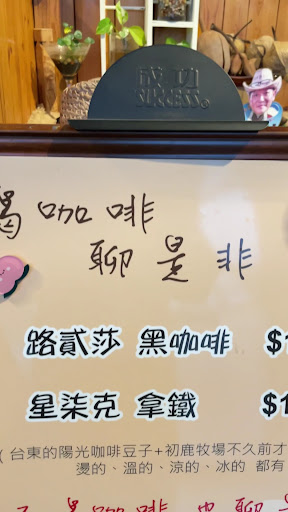 成功
SUCCESS®
喝咖啡
聊是非
路貳莎 黑咖啡 $1
星柒克 拿鐵 $1
(台東的陽光咖啡豆子+初鹿牧場不久前才
燙的、溫的、涼的、冰的 都有
是咖啡 也聊是